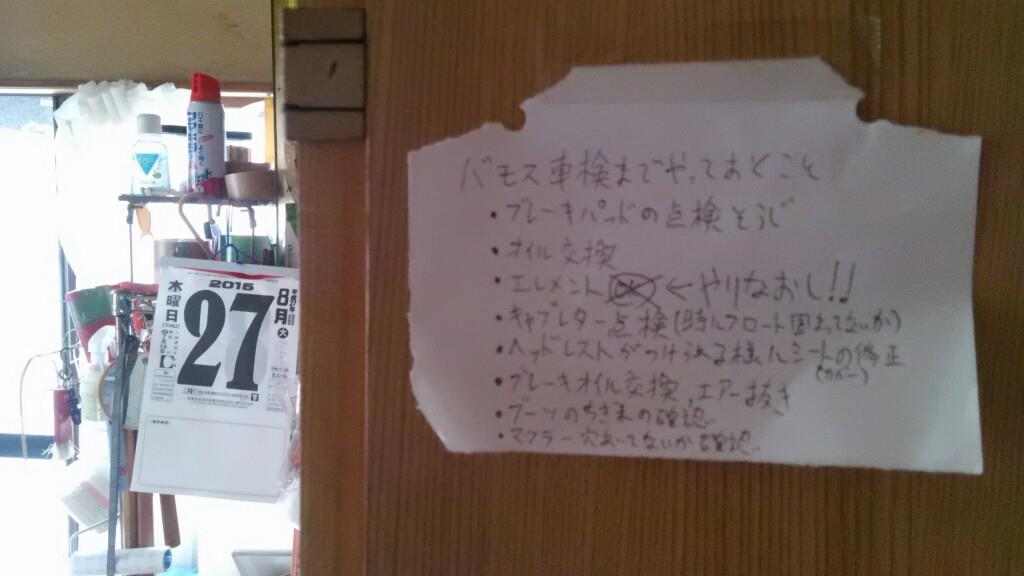 バモス車検までやっておくこと
・ブレーキパッドの点検そうじ
・オイル交換
・エレメント OK ←やりなおし!!
・キャブレター点検(特にフロート固まってないか)
・ヘッドレストがつけられる様にシートの修正
(カバー)
・ブレーキオイル交換、エアー抜き
・ブーツのちぎれの確認
・マフラー穴あいてないか確認
2015
木曜日
(THU)
27
8月
大